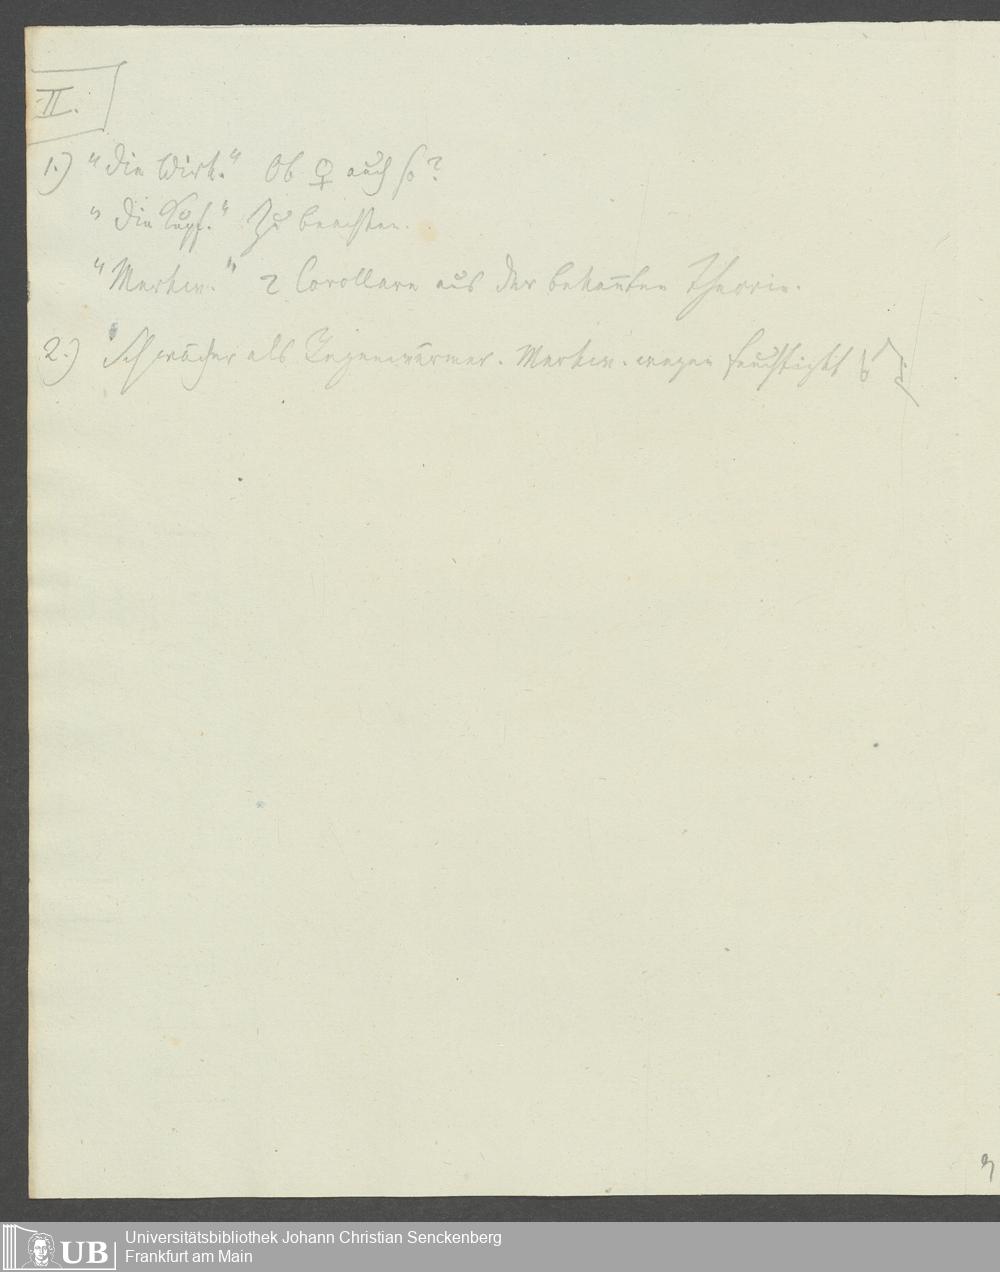 II.
1.) "Die Wirk." Ob ♀ auch so?
"Die Kupf." Zu beachten.
"Merkw." 2 Corollare aus der bekan̅ten Theorie.
2.) Schwächer als Merkw. wegen Feuchtigkt
9
UB
Universitätsbibliothek Johann Christian Senckenberg
Frankfurt am Main